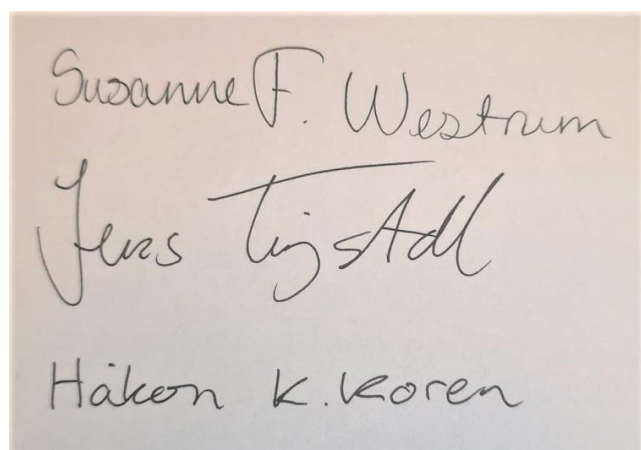 Susanne F. Westrum
Jens Tingstad
Håkon K. Koren